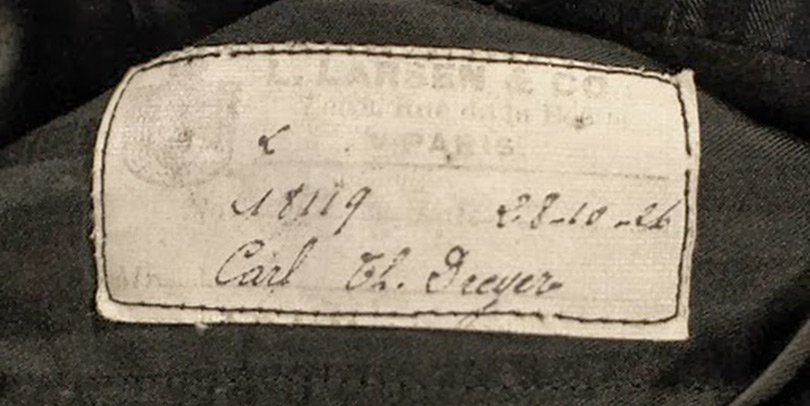 L. LARSEN & CO
Rue de la
PARIS
18119 28-10-26
Carl Th. Dreyer